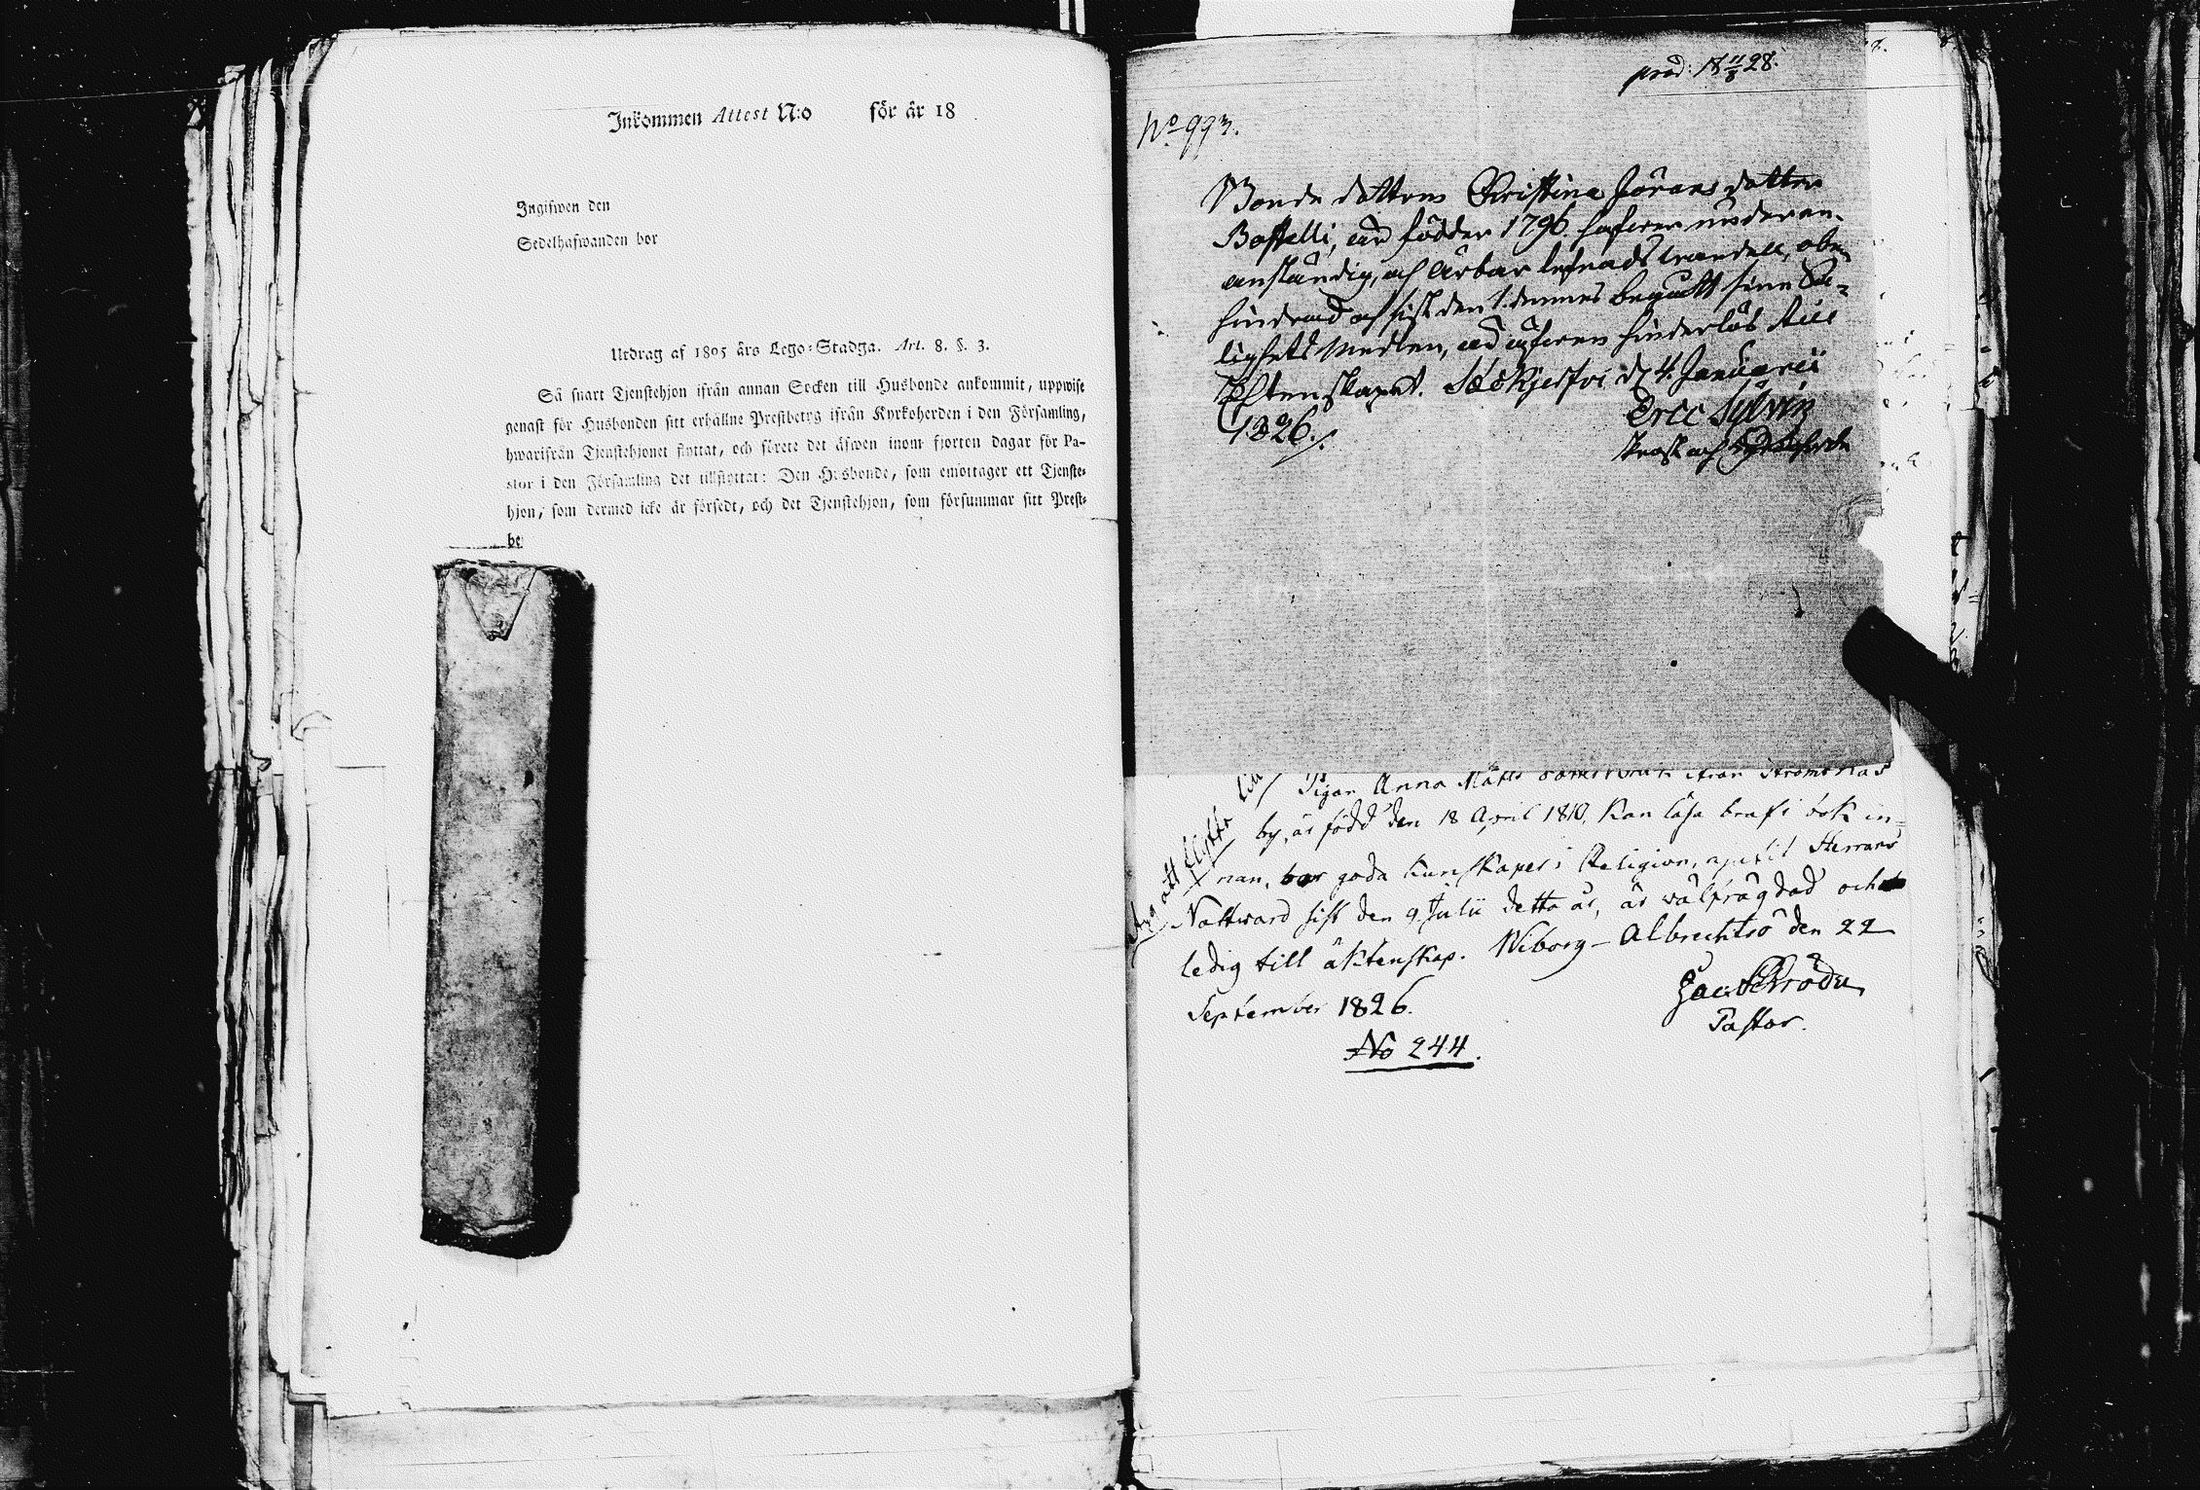 Inkommen Attest N:o för år 18
Ingifwen den
Sedelhafwanden bor
Utdrag af 1805 års Lego-Stadga. Art. 8. §. 3.
Så snart Tjenstehjon ifrån annan Socken till Husbonde ankommit, uppwise
genast för Husbonden sitt erhållne Prestbetyg ifrån Kyrkoherden i den Församling,
hwarifrån Tjenstehjonet flyttat, och förete det äfwen inom fjorton dagar för Pa-
stor i den Församling det tillflyttat: Den Husbonde, som emottager ett Tjenste-
hjon, som dermed icke är försedt, och det Tjenstehjon, som försummar sitt Prest-
be
prod: 18 11/8 28.
No 993.
Bonde dottren Christina Jörans dotter
är födder 1796
anständig, och ärbar lefnads wandel, obe-
hindrad och sist den 1. dennes begått sine Sa-
lighets Medlen, äfwen hinderlös till
Echtenskapet. d. 4 Januarii
1826./.
Eric
Prost och Kyrkoherde
Pigan Anna Matts dotter ifrån Strömsnäs
by, är född den 18 April 1810, kan läsa braf i bok in-
nan, har goda kunskaper i Religion, Herrans
Nattward sist den 9. Julii detta år, är wälfrägdad och
ledig till äktenskap. Wiborg - Albrechtsö den 22
September 1826.
Pastor.
No 244.
att flytta